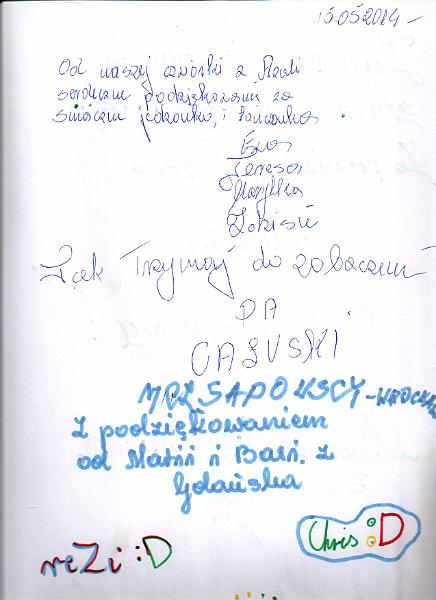 15.05.2014 -
Od naszej czwórki z
serdeczne podziękowania za
smaczne jedzonko, i
Ewa
Teresa
Marylka
Zbisiu
Tak Trzymaj do zobaczenia
PA
CAŁUSKI
SADOWSCY - WROCŁAW
Z podziękowaniem
od Marii i Basi. Z
Gdańska
reZi :D
Chris :D